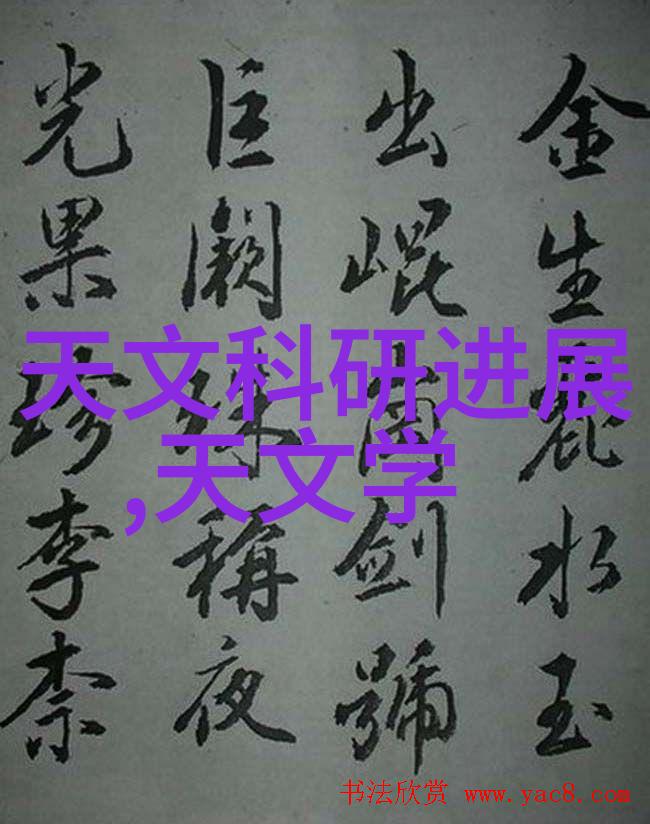 金生麗水玉
出崐崗劍號
巨闕珠稱夜
光果珍李柰
天文科研进展
,天文学
书法欣赏 www.yac8.com